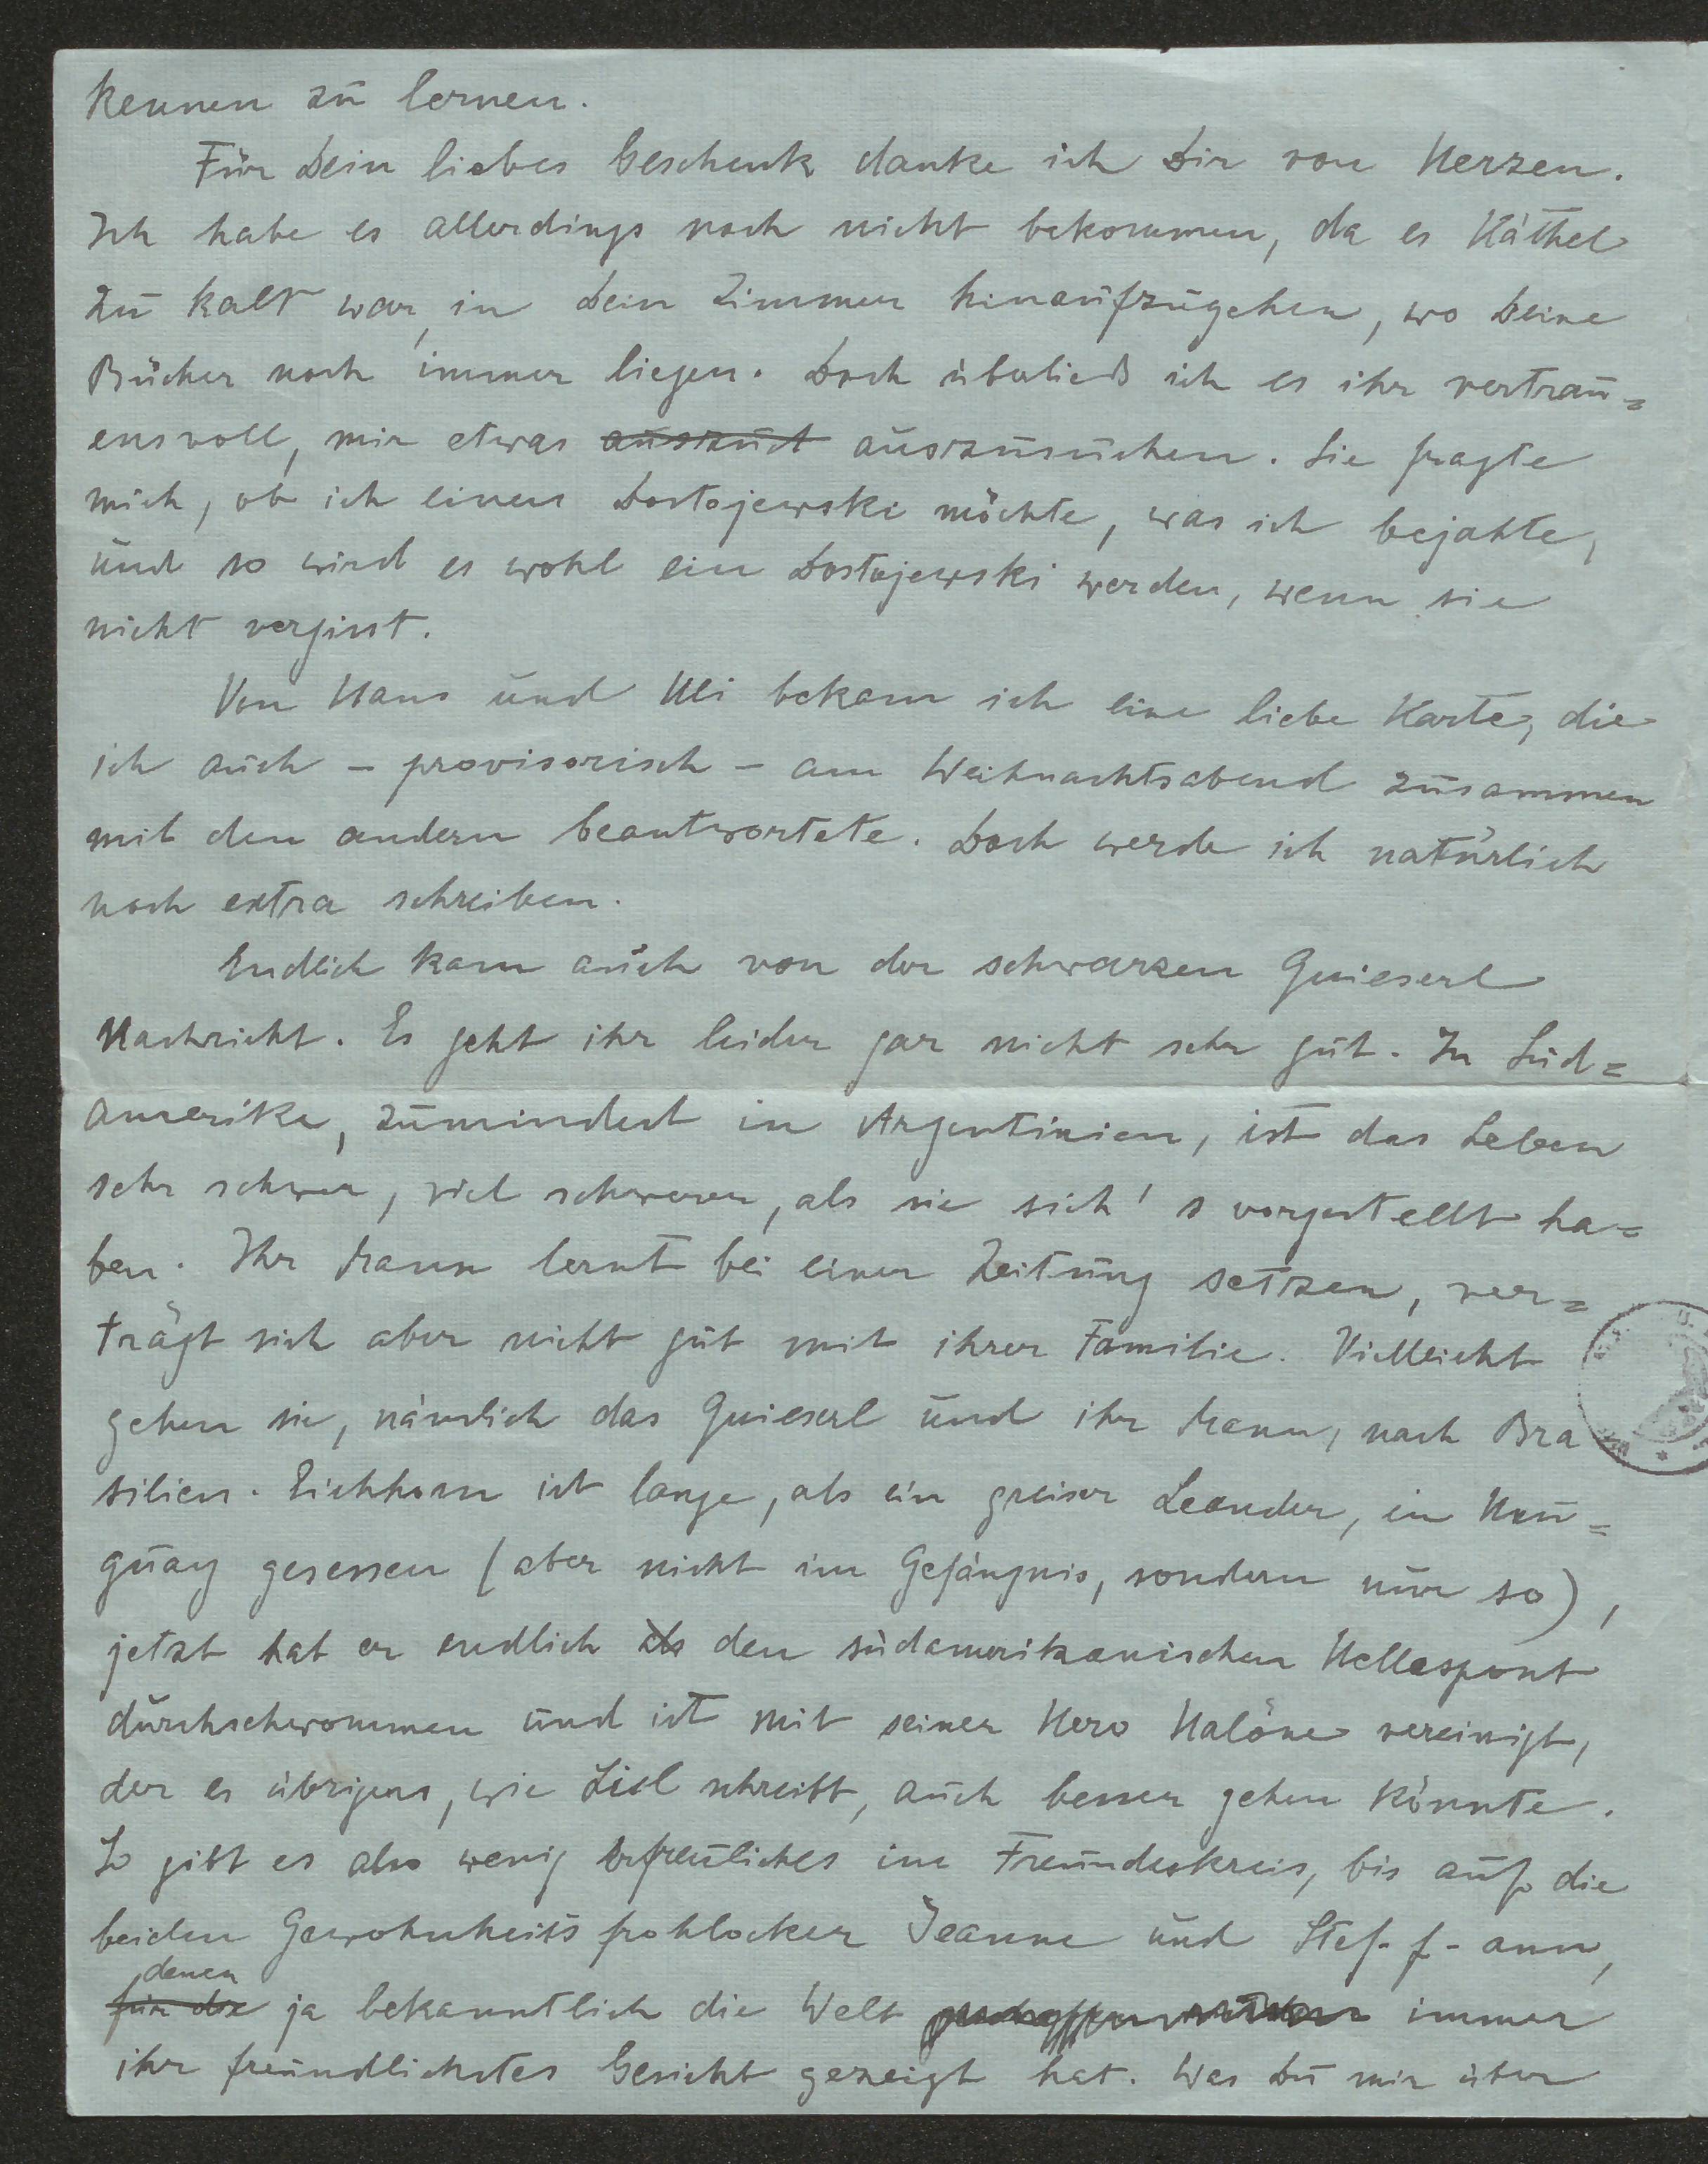 kennen zu lernen.
Für Dein liebes Geschenk danke ich Dir von Herzen.
Ich habe es allerdings noch nicht bekommen, da es Käthel
zu kalt war, in Dein Zimmer hinaufzugehen, wo Deine
Bücher noch immer liegen. Doch überließ ich es ihr vertrau=
ensvoll, mir etwas auszusuchen. Sie fragte
mich, ob ich einen Dostojewski möchte, was ich bejahte,
und so wird es wohl ein Dostojewski werden, wenn sie
nicht vergisst.
Von Hans und Uli bekam ich eine liebe Karte, die
ich auch – provisorisch – am Weihnachtsabend zusammen
mit den andern beantwortete. Doch werde ich natürlich
noch extra schreiben.
Endlich kam auch von der schwarzen Guieserl
Nachricht. Es geht ihr leider gar nicht sehr gut. In Süd=
amerika, zumindest in Argentinien, ist das Leben
sehr schwer, viel schwerer, als sie sich's vorgestellt ha=
ben. Ihr Mann lernt bei einer Zeitung setzen, ver=
trägt sich aber nicht gut mit ihrer Familie. Vielleicht
gehen sie, nämlich das Guieserl und ihr Mann, nach Bra
silien. Eichhorn ist lange, als ein greiser Leander, in Uru=
guay gesessen (aber nicht im Gefängnis, sondern nur so),
jetzt hat er endlich als den südamerikanischen Hellespont
durchschwommen und ist mit seiner Hero Malöne vereinigt,
der es übrigens, wie Lisl schreibt, auch besser gehen könnte.
So gibt es also wenig Erfreuliches im Freundeskreis, bis auf die
beiden Gewohnheitsfrohlocker Jeanne und Stef-f-ann,
für die denen ja bekanntlich die Welt immer
ihr freundlichstes Gesicht gezeigt hat. Was Du mir über